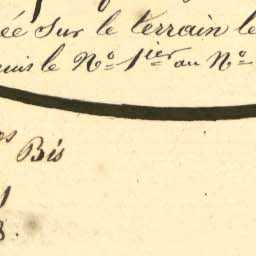 ée sur le terrain le
uis le N° 1ier au N°
os Bis
8.